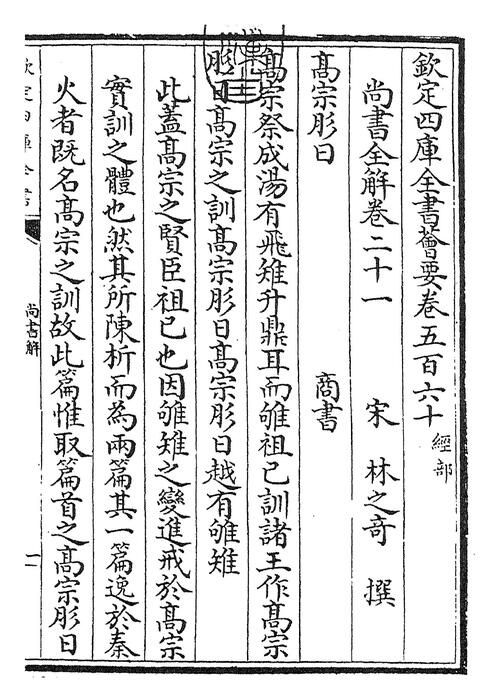 欽定四庫全書薈要卷五百六十 經部
尚書全解卷二十一 宋 林之奇 撰
高宗肜日 商書
高宗祭成湯有飛雉升鼎耳而雊祖己訓諸王作高宗
肜日高宗之訓高宗肜日高宗肜日越有雊雉
此蓋高宗之賢臣祖己也因雊雉之變進戒於高宗
實訓之體也然其所陳析而為兩篇其一篇逸於秦
火者既名高宗之訓故此篇惟取篇首之高宗肜日
欽定四庫全書
尚書解
一